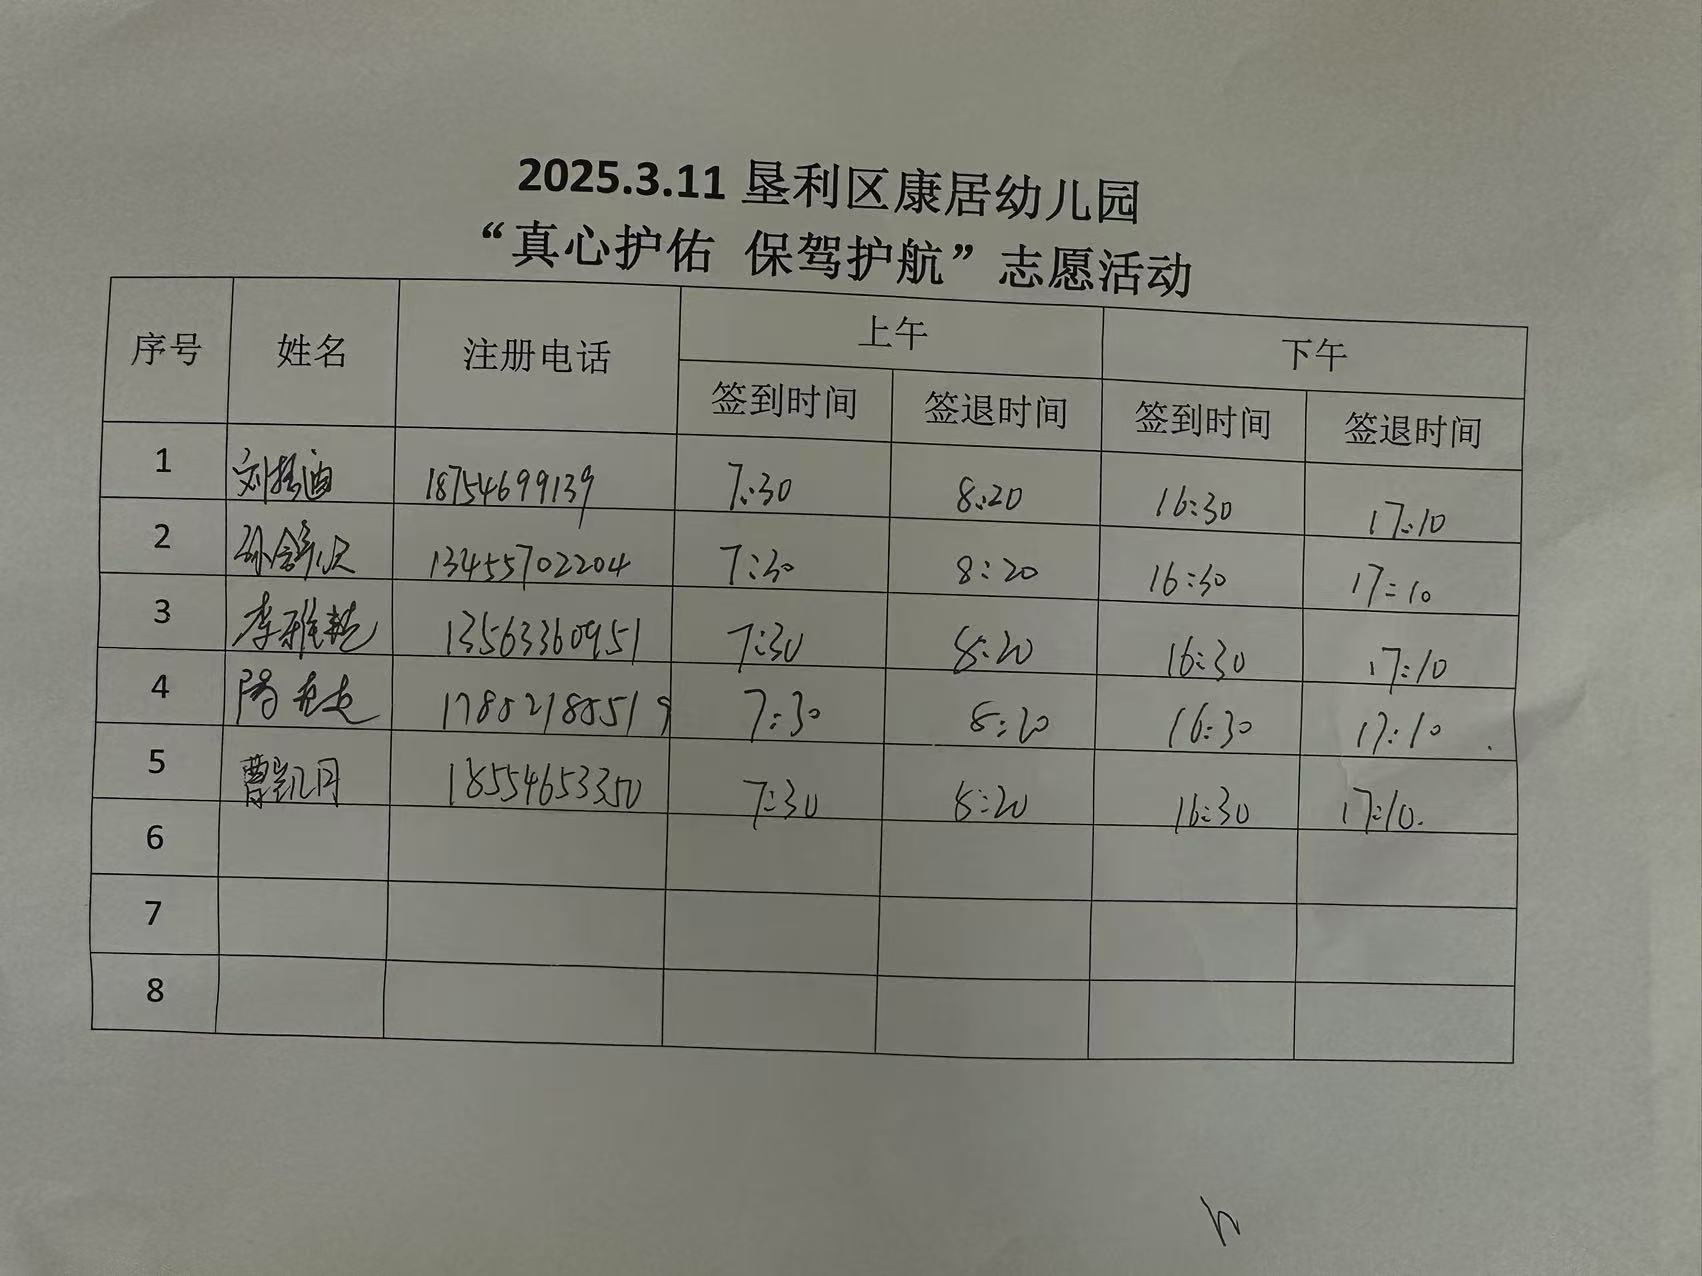 2025.3.11 垦利区康居幼儿园
“真心护佑 保驾护航”志愿活动
序号 姓名 注册电话 上午 下午
签到时间 签退时间 签到时间 签退时间
1 刘 迪 18754699139 7:30 8:20 16:30 17:10
2 孙 13455702204 7:30 8:20 16:30 17:10
3 李雅乾 13563360951 7:30 8:20 16:30 17:10
4 17852185519 7:30 8:20 16:30 17:10
5 曹凯月 18554653350 7:30 8:20 16:30 17:10
6
7
8